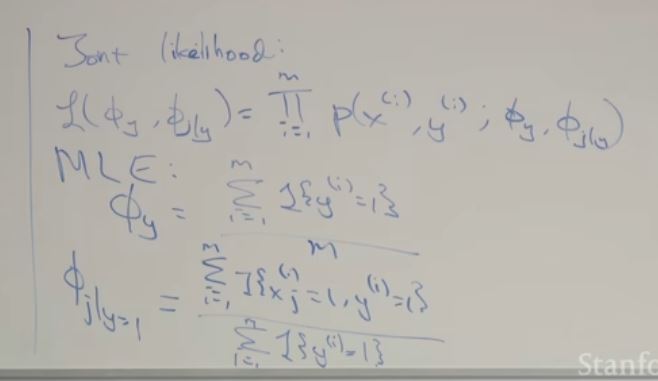 Joint likelihood:
L(ϕ_y, ϕ_{j|y}) = ∏_{i=1}^{m} p(x^{(i)}, y^{(i)}; ϕ_y, ϕ_{j|y})
MLE:
ϕ_y = \frac{∑_{i=1}^{m} 1{y^{(i)}=1}}{m}
ϕ_{j|y=1} = \frac{∑_{i=1}^{m} 1{x_j^{(i)}=1, y^{(i)}=1}}{∑_{i=1}^{m} 1{y^{(i)}=1}}
Stanfo